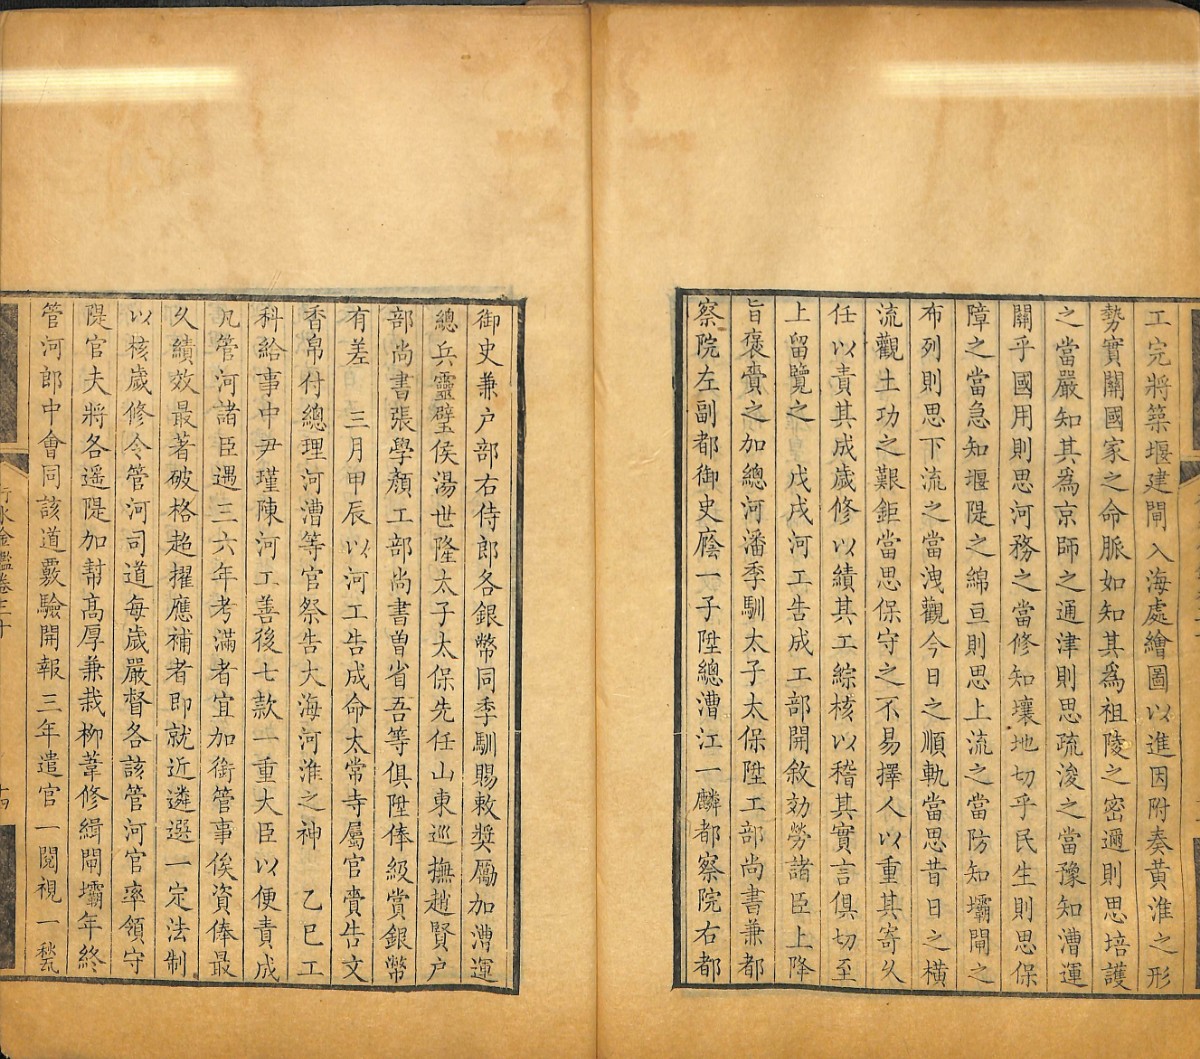 工完將築堰建閘入海處繪圖以進因附奏黃淮之形
勢實關國家之命脈如知其爲祖陵之密邇則思培護
之當嚴知其爲京師之通津則思疏浚之當豫知漕運
關乎國用則思河務之當修知壤地切乎民生則思保
障之當急知堰隄之綿亘則思上流之當防知壩閘之
布列則思下流之當洩觀今日之順軌當思昔日之橫
流觀土功之艱鉅當思保守之不易擇人以重其寄久
任以責其成歲修以績其工綜核以稽其實言俱切至
上留覽之　戊戌河工告成工部開敘効勞諸臣上降
旨褒賚之加總河潘季馴太子太保陞工部尚書兼都
察院左副都御史廕一子陞總漕江一麟都察院右都
御史兼户部右侍郎各銀幣同季馴賜敕獎勵加漕運
總兵靈璧侯湯世隆太子太保先任山東巡撫趙賢户
部尚書張學顏工部尚書曾省吾等俱陞俸級賞銀幣
有差　三月甲辰以河工告成命太常寺屬官賫告文
香帛付總理河漕等官祭告大海河淮之神　乙巳工
科給事中尹瑾陳河工善後七款一重大臣以便責成
凡管河諸臣遇三六年考滿者宜加銜管事俟資俸最
久績效最著破格超擢應補者即就近遴選一定法制
以核歲修令管河司道每歲嚴督各該管河官率領守
隄官夫將各遥隄加幫高厚兼栽柳葦修緝閘壩年終
管河郎中會同該道覈驗開報三年遣官一閱視一甃
行水金鑑卷三十
十四